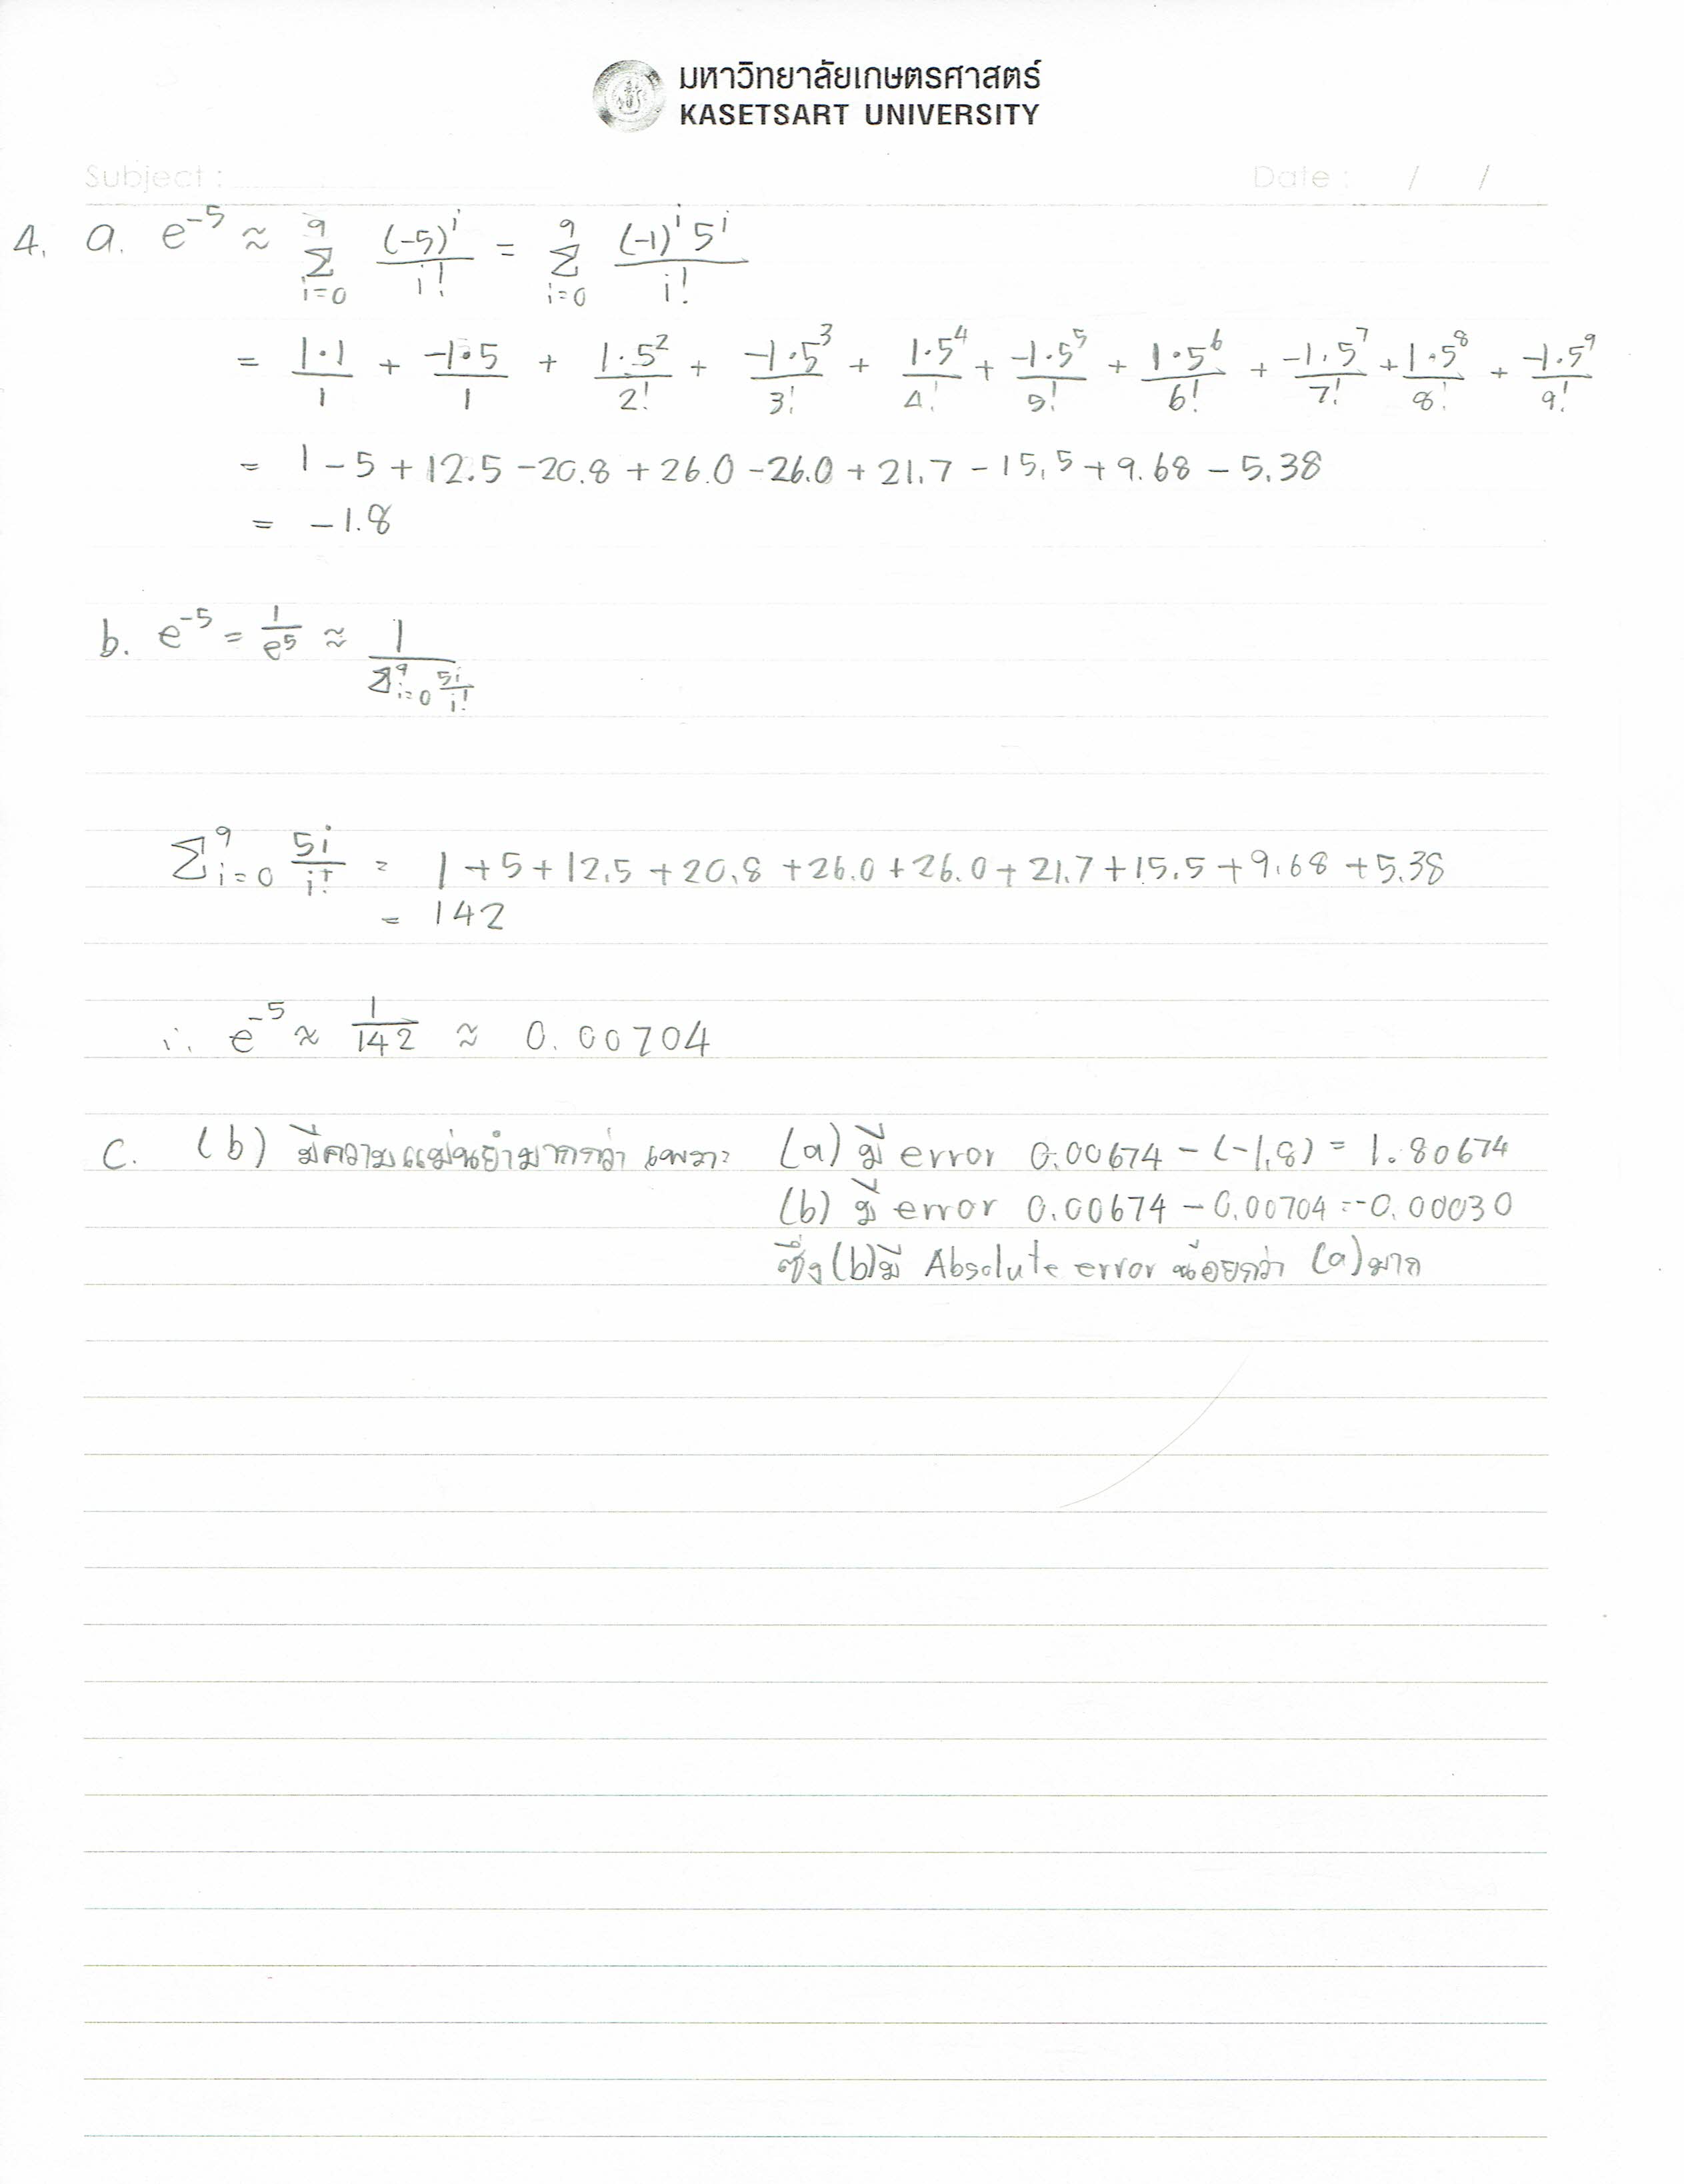 มหาวิทยาลัยเกษตรศาสตร์
KASETSART UNIVERSITY
Subject : Date : / /
4. a. e^{-5} ≈ Σ_{i=0}^{9} (-5)^i / i! = Σ_{i=0}^{9} (-1)^i 5^i / i!
= 1·1/1 + -1·5/1 + 1·5^2/2! + -1·5^3/3! + 1·5^4/4! + -1·5^5/5! + 1·5^6/6! + -1·5^7/7! + 1·5^8/8! + -1·5^9/9!
= 1 - 5 + 12.5 - 20.8 + 26.0 - 26.0 + 21.7 - 15.5 + 9.68 - 5.38
= -1.8
b. e^{-5} = 1/e^5 ≈ 1 / Σ_{i=0}^{9} 5i/i!
Σ_{i=0}^{9} 5i/i! = 1 + 5 + 12.5 + 20.8 + 26.0 + 26.0 + 21.7 + 15.5 + 9.68 + 5.38
= 142
∴ e^{-5} ≈ 1/142 ≈ 0.00704
c. (b) มีความแม่นยำมากกว่า เพราะ (a) มี error 0.00674 - (-1.8) = 1.80674
(b) มี error 0.00674 - 0.00704 = -0.00030
ซึ่ง (b) มี Absolute error น้อยกว่า (a) มาก